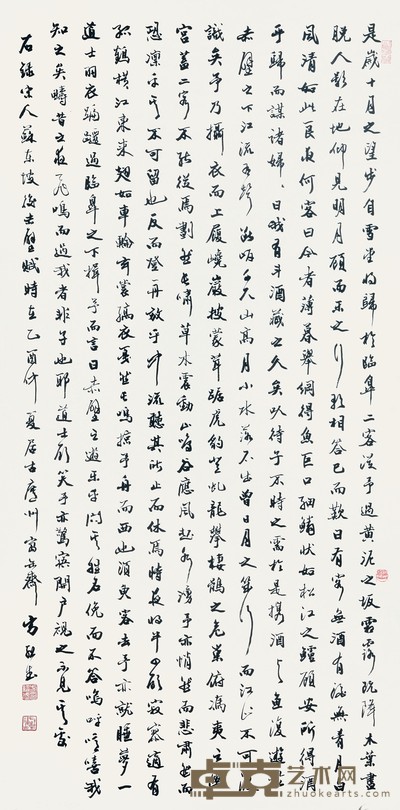 是歲十月之望步自雪堂將歸於臨皋二客從予過黃泥之坂霜露既降木葉盡
脫人影在地仰見明月顧而樂之行歌相答已而歎曰有客無酒有酒無肴月白
風清如此良夜何客曰今者薄暮舉網得魚巨口細鱗狀如松江之鱸顧安所得酒
乎歸而謀諸婦婦曰我有斗酒藏之久矣以待子不時之需於是攜酒與魚復遊於
赤壁之下江流有聲斷岸千尺山高月小水落石出曾日月之幾何而江山不可復
識矣予乃攝衣而上履巉巖披蒙茸踞虎豹登虬龍攀棲鶻之危巢俯馮夷之幽
宮蓋二客不能從焉劃然長嘯草木震動山鳴谷應風起水湧予亦悄然而悲肅然而
恐凜乎其不可留也反而登舟放乎中流聽其所止而休焉時夜將半四顧寂寥適有
孤鶴橫江東來翅如車輪玄裳縞衣戛然長鳴掠予舟而西也須臾客去予亦就睡夢一
道士羽衣蹁躚過臨皋之下揖予而言曰赤壁之遊樂乎問其姓名俛而不答嗚呼噫嘻我
知之矣疇昔之夜飛鳴而過我者非子也耶道士顧笑予亦驚寤開戶視之不見其處
右錄宋人蘇東坡後赤壁賦時在乙酉仲夏居古廬州
卓克艺术网
zhuokearts.com